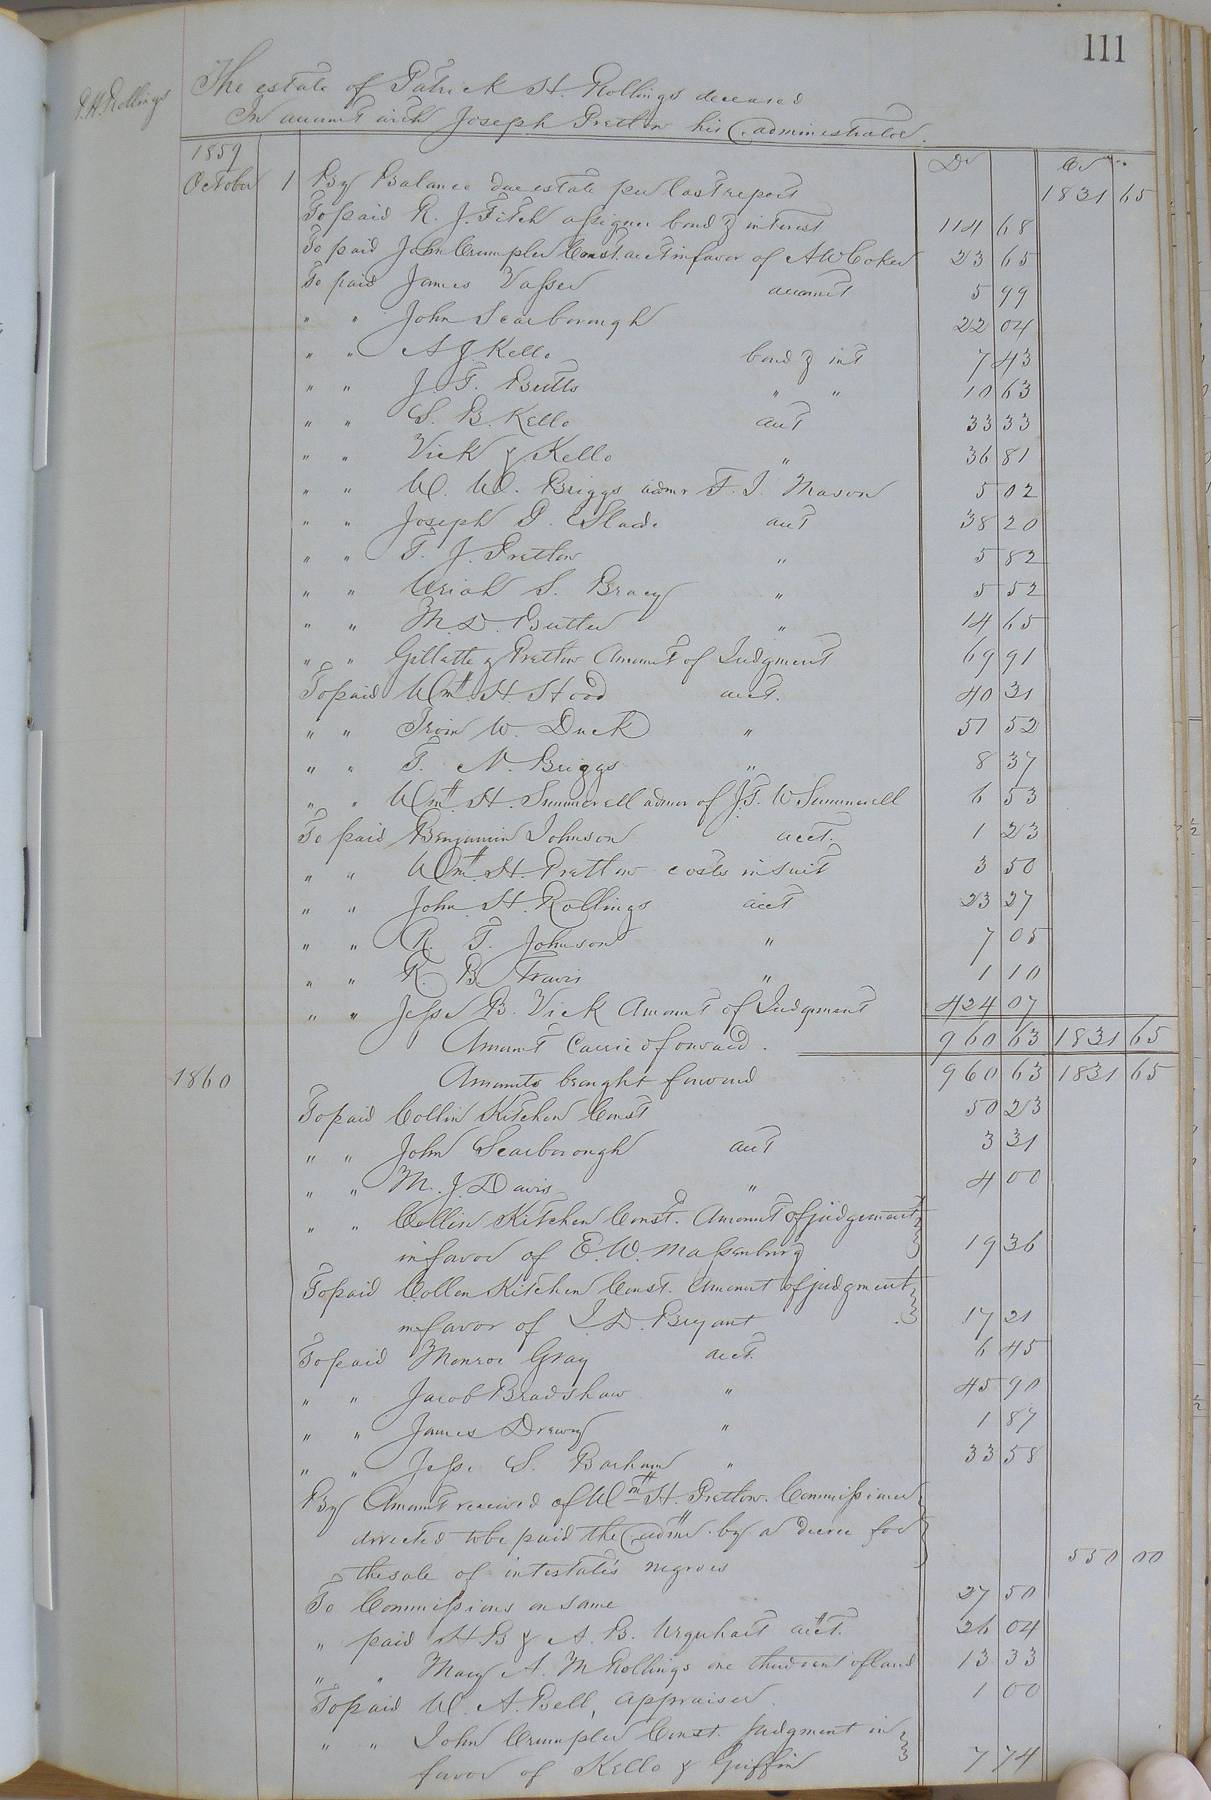 111
P. H. Rollings
The estate of Patrick H. Rollings deceased
In account with Joseph Pretlow his administrator.
1859 Dr Cr
October 1 By Balance due estate per last report 1831 65
To paid R. J. Fitch assignee bond & interest 114 68
To paid John Crumpler Const. acct in favor of A W Coker 23 65
To paid James Vasser account 5 99
" " John Scarborough 22 04
" " A J. Kello bond & int 7 43
" " J. T. Butts " " 10 63
" " S. B. Kello acct 33 33
" " Vick & Kello " 36 81
" " W. W. Briggs admr T. J. Mason 5 02
" " Joseph P. Slade acct 38 20
" " T. J. Pretlow " 5 82
" " Uriah S. Bracy " 5 52
" " M. D. Butler " 14 65
" " Gillette & Pretlow Amount of Judgment 69 91
To paid Wm. H. Hood acct. 40 31
" " Irvin W. Duck " 51 52
" " T. N. Briggs " 8 37
" " Wm. H. Summerell admr of J. T. W Summerell 6 53
To paid Benjamin Johnson acct. 1 23
" " Wm. H. Pretlow costs in suit 3 50
" " John H. Rollings acct 23 27
" " R. T. Johnson " 7 05
" " R. B. Travis " 1 10
" " Jesse B. Vick Amount of Judgment 424 07
Amount Carried forward. 960 63 1831 65
1860 Amounts brought forward 960 63 1831 65
To paid Collin Kitchen Const 50 23
" " John Scarborough acct 3 31
" " M. J. Davis " 4 00
" " Collin Kitchen Const. Amount of judgement
in favor of E. W. Massenburg 19 36
To paid Collen Kitchen Const. Amount of judgment
in favor of J. D. Bryant 17 21
To paid Monroe Gray acct. 6 45
" " Jacob Bradshaw " 45 90
" " James Drewry " 1 87
" " Jesse S. Barham " 33 58
By Amount received of Wm H. Pretlow. Commissioner
directed to be paid the admr. by a decree for
the sale of intestate's negroes 550 00
To Commissions on same 27 50
" paid H. B & A. B. Urquhart acct. 26 04
" " Mary A. M Rollings one third rent of land 13 33
To paid W. A. Bell, appraiser. 1 00
" " John Crumpler Const. Judgment in
favor of Kello & Griffin 7 74